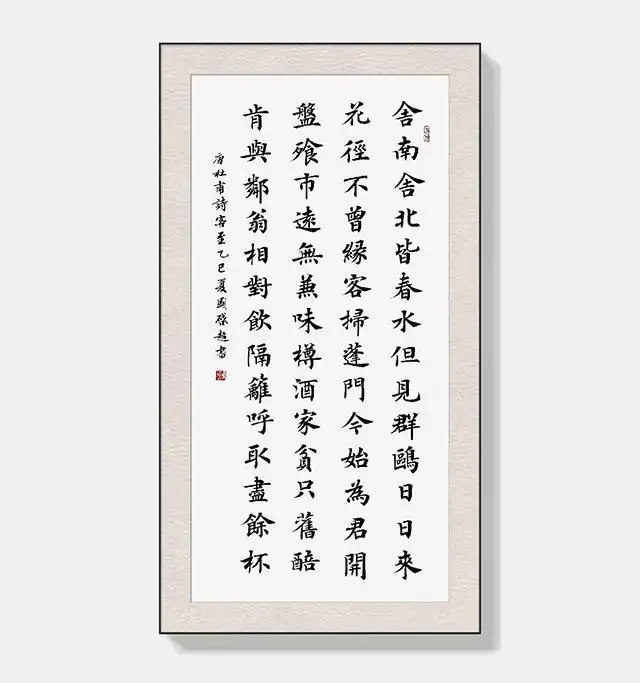 舍南舍北皆春水但見群鷗日日來
花徑不曾緣客掃蓬門今始為君開
盤飧市遠無兼味樽酒家貧只舊醅
肯與鄰翁相對飲隔籬呼取盡餘杯
唐杜甫詩客至乙巳夏盛啓超書